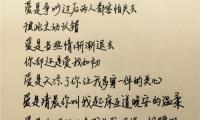 爱是争吵过后两人都害怕失去
彼此主动认错
爱是当热情渐渐退去
你却还是爱我如初
爱是天凉了你让我多穿一件的关心
爱是清晨你叫我起床道晚安的温柔